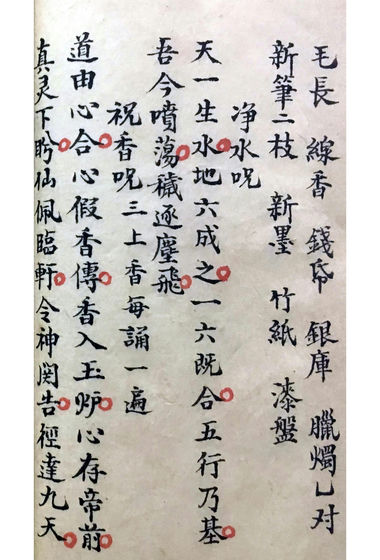 毛長 線香 錢帋 銀庫 臘燭乚对
新筆二枝 新墨 竹紙 漆盤
净水呪
天一生水地六成之一六既合五行乃基
吾今噴蕩穢逐塵飛
祝香呪三上香每誦一遍
道由心合心假香傳香入玉炉心存帝前
真灵下盻仙佩臨軒令神関告徑達九天